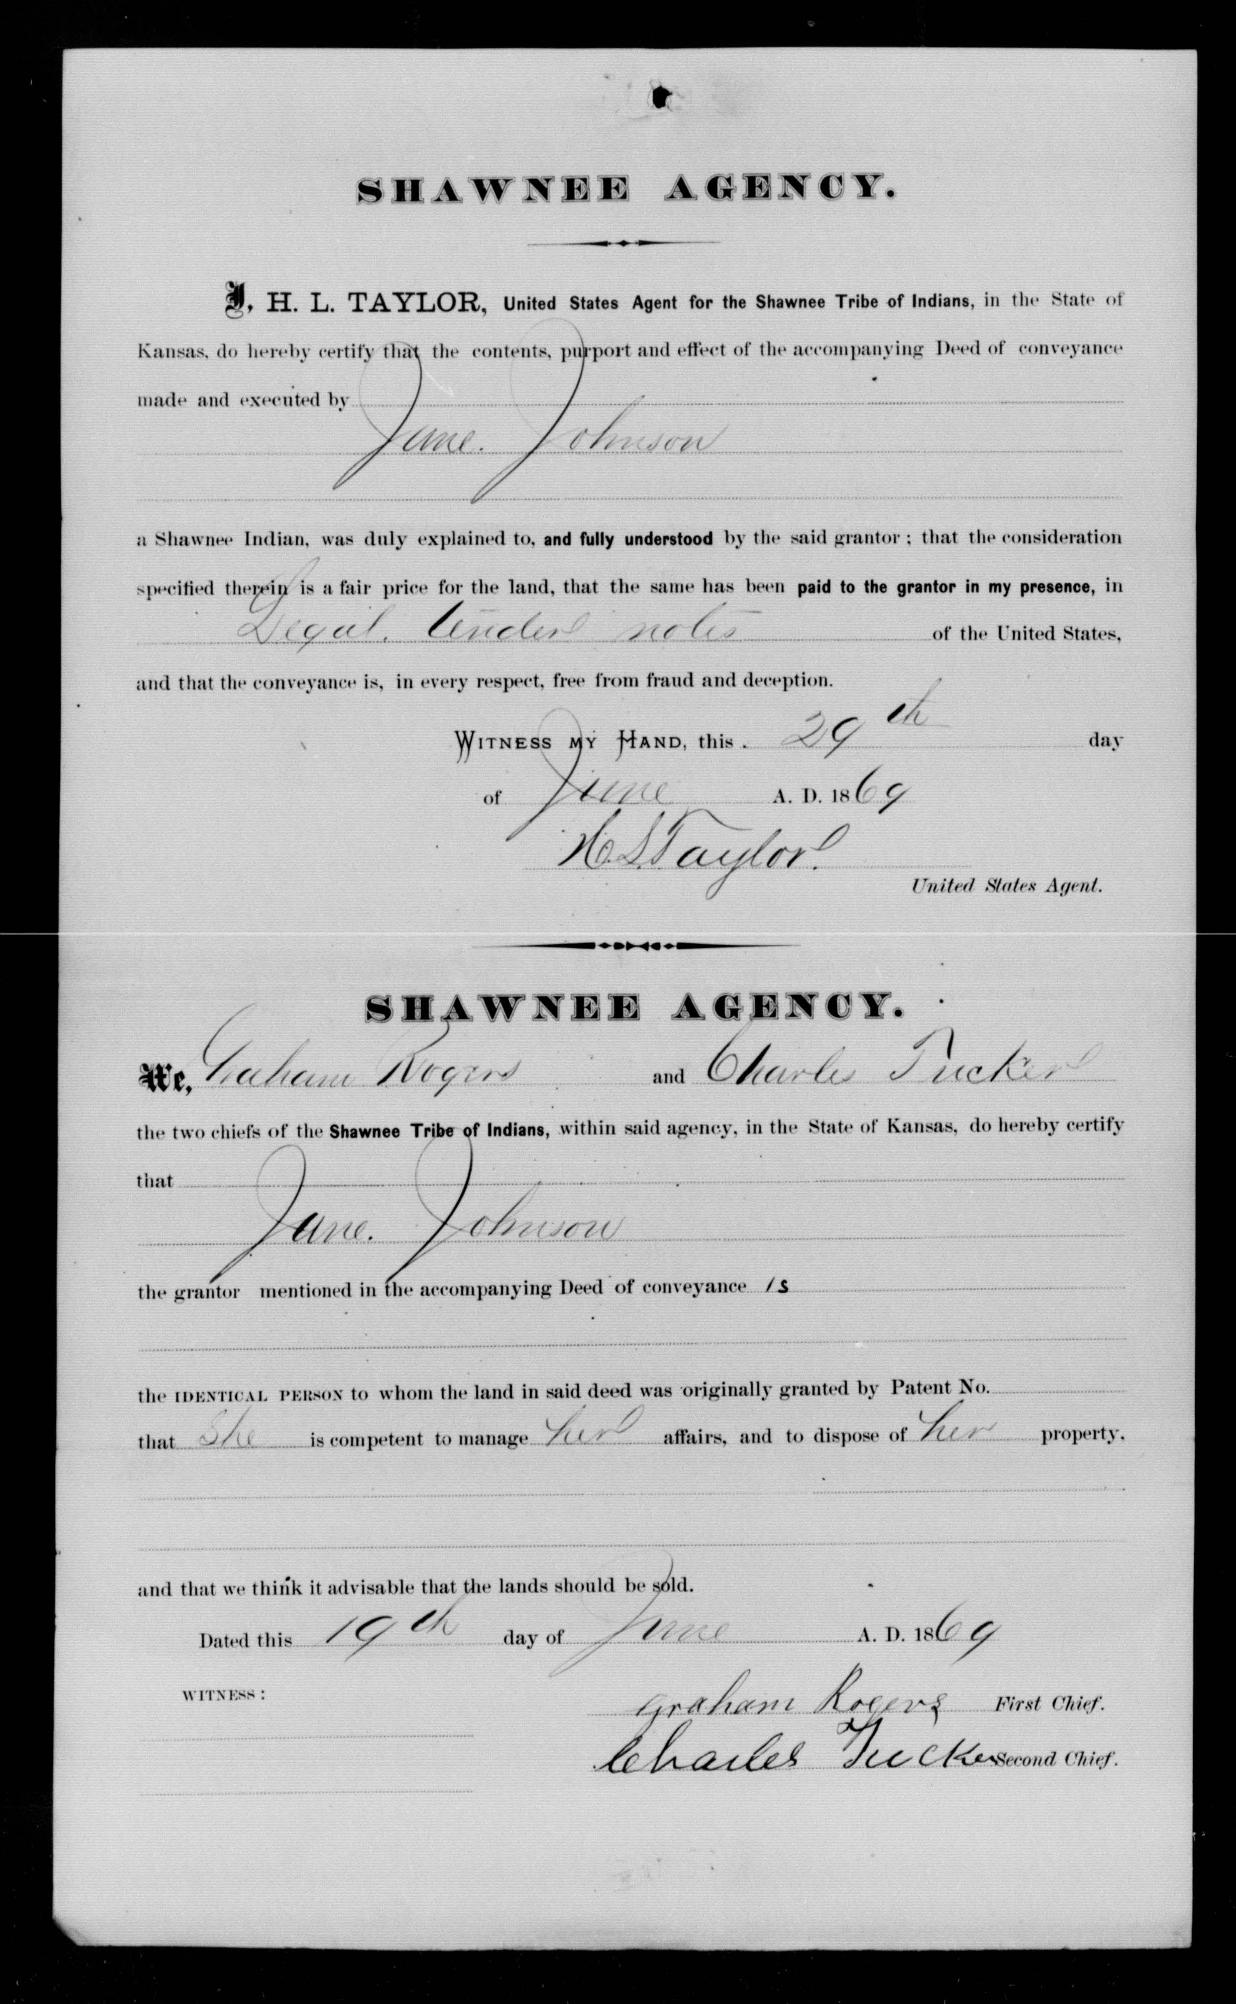 SHAWNEE AGENCY.
I, H. L. TAYLOR, United States Agent for the Shawnee Tribe of Indians, in the State of
Kansas, do hereby certify that the contents, purport and effect of the accompanying Deed of conveyance
made and executed by
Jane. Johnson
a Shawnee Indian, was duly explained to, and fully understood by the said grantor ; that the consideration
specified therein is a fair price for the land, that the same has been paid to the grantor in my presence, in
Legal. tender notes of the United States,
and that the conveyance is, in every respect, free from fraud and deception.
WITNESS MY HAND, this 29th day
of June A. D. 1869
H. L. Taylor.
United States Agent.
SHAWNEE AGENCY.
We, Graham Rogers and Charles Tucker
the two chiefs of the Shawnee Tribe of Indians, within said agency, in the State of Kansas, do hereby certify
that
Jane. Johnson
the grantor mentioned in the accompanying Deed of conveyance is
the IDENTICAL PERSON to whom the land in said deed was originally granted by Patent No.
that She is competent to manage her affairs, and to dispose of her property.
and that we think it advisable that the lands should be sold.
Dated this 19th day of June A. D. 1869
WITNESS :
Graham Rogers First Chief.
Charles Tucker Second Chief.